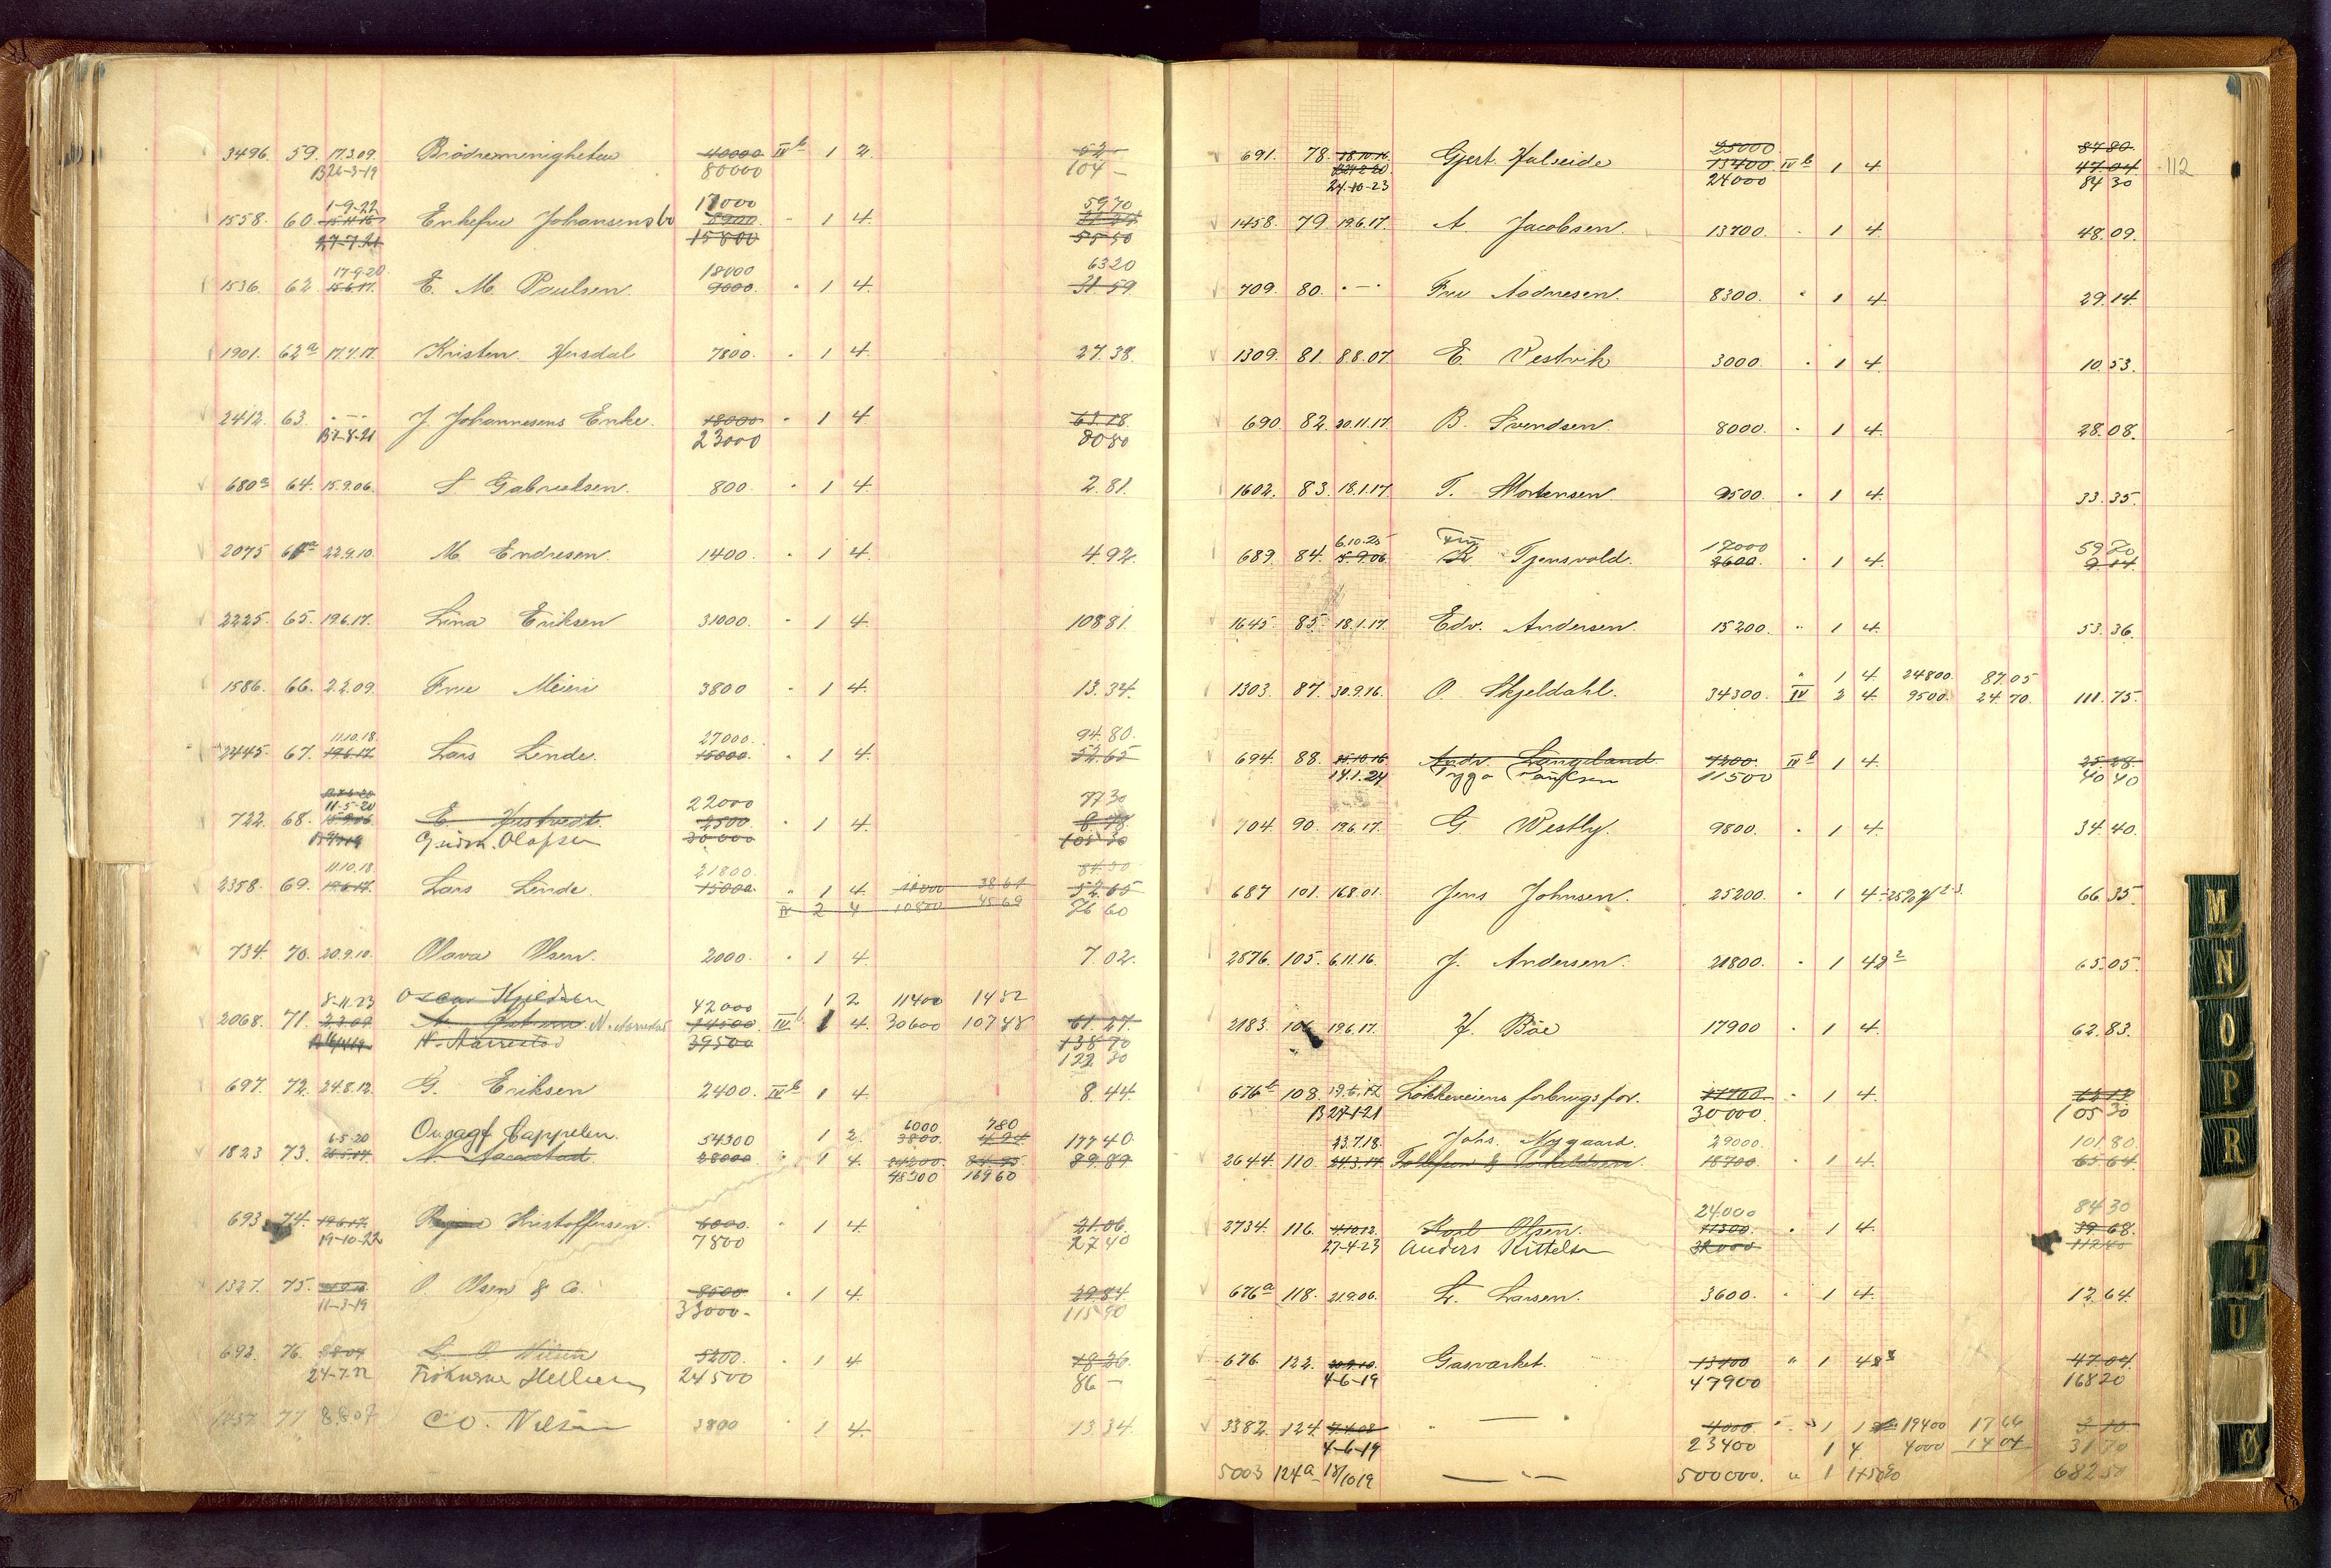 3496. 59. 17.3.09. Brödremenigheten 40000 IV b 1 2. 52 -
B 26-3-19 80000 104 -
1-9-22 17000 59 70
1558. 60. Enkefru Johansens bo 8900 " 1 4.
27-7-21 15800 55 50
17-9-20 18000 63 20
1536. 62. 15.6.17. E. M. Paulsen. 9000. " 1 4. 31.59
1901. 62 a 17.7.17. Kristen Hersdal 7800. " 1 4. 27.38.
2412. 63. " — " J. Johannesens Enke. 18000 " 1 4 63.18
B 7-8-21 23000 80 80
680 a 64. 15.9.06. S Gabrielsen. 800. " 1 4. 2.81.
2075 64 a 22.9.10. M. Endresen. 1400. " 1 4. 4.92.
2225. 65. 19.6.17. Lina Eriksen 31000. " 1 4. 108 81.
1586. 66. 2.2.09. Frue Meieri 3800 " 1 4. 13.34.
11.10.18. 27000. 94.80.
2445. 67. 19.6.17 Lars Linde. 15000. " 1 4. 52.65
11-5-20 22000 77 30
722. 68. 15.9.06. E. 2500. " 1 4. 8.78
Gudm. Olafsen 30000 105 30
11.10.18. 21800. 84.30
2358. 69. 19.6.17. Lars Linde. 15000. " 1 4. 11000 38 61 52.65
IV 2 4 10800 45 69 76 60
734. 70. 20.9.10. Olava Olsen. 2000. " 1 4 7.02.
8-11-23 Oscar Kjeldsen 42000 1 2 11400 14 82
2068. 71. 2.2.09 N. Nærrestad 14500. IV b 1 4. 30600 107 48 61.27.
N. Nærrestad 39500 138 70
122 30
697. 72. 24.8.12. G. Eriksen 2400. IV b 1 4. 8.44.
Ovsagf Cappelen. 54300 1 2. 6000 780
6-5-20 3800. 4 94 177 40.
1823 73. 28000 " 1 4. 24200. 84.95 89.89
48300 169 60
693 74. 19.6.17. Kristoffersen. 6000. " 1 4. 21.06.
19-10-22 7800 27 40
1327. 75. O. Olsen & Co. 8500 " 1 4. 29.84
11-3-19 33000- 115 90
692. 76. 8.8.07 C. O. Nilsen 5200. " 1 4 18.26.
24-7-22 Frøknene Hellesen 24500 86 -
1437. 77 8.8.07 C O. Nilsen 3800 " 1 4. 13.34.
112
25000 87 80.
691. 78. 18.10.16 Gjert Halseide 13400 IV b 1 4. 47.04
24-10-23 24000 84 30
1458. 79 19.6.17. A. Jacobsen. 13700. " 1 4. 48.09.
709. 80. " — " Fru Aadnesen. 8300. " 1 4. 29.14.
1309. 81. 8.8.07. E. Vestvik 3000. " 1 4. 10.53.
690. 82. 20.11.17. B. Svendsen. 8000. " 1 4. 28.08.
1602. 83. 18.1.17. T. Mortensen 9500. " 1 4. 33.35.
6.10.25 Fru 17000 59 70
689. 84. 15.9.06 Tjensvold. 2600. " 1 4. 9.14.
1645 85. 18.1.17. Edv. Andersen. 15200. " 1 4. 53.36.
" 1 4. 24800. 87.05
1303. 87. 30.9.16. O. Skjeldahl. 34300. IV 2 4. 9500. 24.70. 111.75.
694. 88. 25.10.16 Andr. Langeland 7200. IV b 1 4. 25.28.
14.1.24 Tygo Paulsen 11500 40 40
704. 90. 19.6.17. G Westly. 9800. " 1 4. 34.40.
687 101. 16.8.01. Jens Johnsen. 25200. " 1 4 ÷ 25% 66.35.
2876. 105. 6.11.16. J. Andersen. 21800. " 1 4 65.05.
2183. 106 19.6.17. H. Böe 17900 " 1 4. 62.83.
676 b 108. 19.6.17 Lökkeveiens forbrugsfor. 17700 " 1 4.
B 27-1-21 30000. 105 30
23.7.18. Johs. Nygaard. 29000. 101.80.
2644. 110. 24.3.17 Tollefsen & Torkeldsen. 18700. " 1 4. 65.64.
24.000 84 30
2734. 116. 4.10.12. Karl Olsen. 11300. " 1 4. 39.68.
27-4-23 Anders Kittelsen 32000 112 40
676 a 118. 21.9.06. L. Larsen. 3600. " 1 4. 12.64.
676. 122. 20.9.10. Gasværket. 13400 " 1 4 47.04.
4-6-19 47900 168 20
3382. 124. " — " 4000. " 1 1 19400 17 66 3.10
4-6-19 23400 1 4. 4000 14 04 31 70
5003 124 a 18/10 19 — " — 500000. " 1 682 50
M
N
O
P
R
T
U
Ø